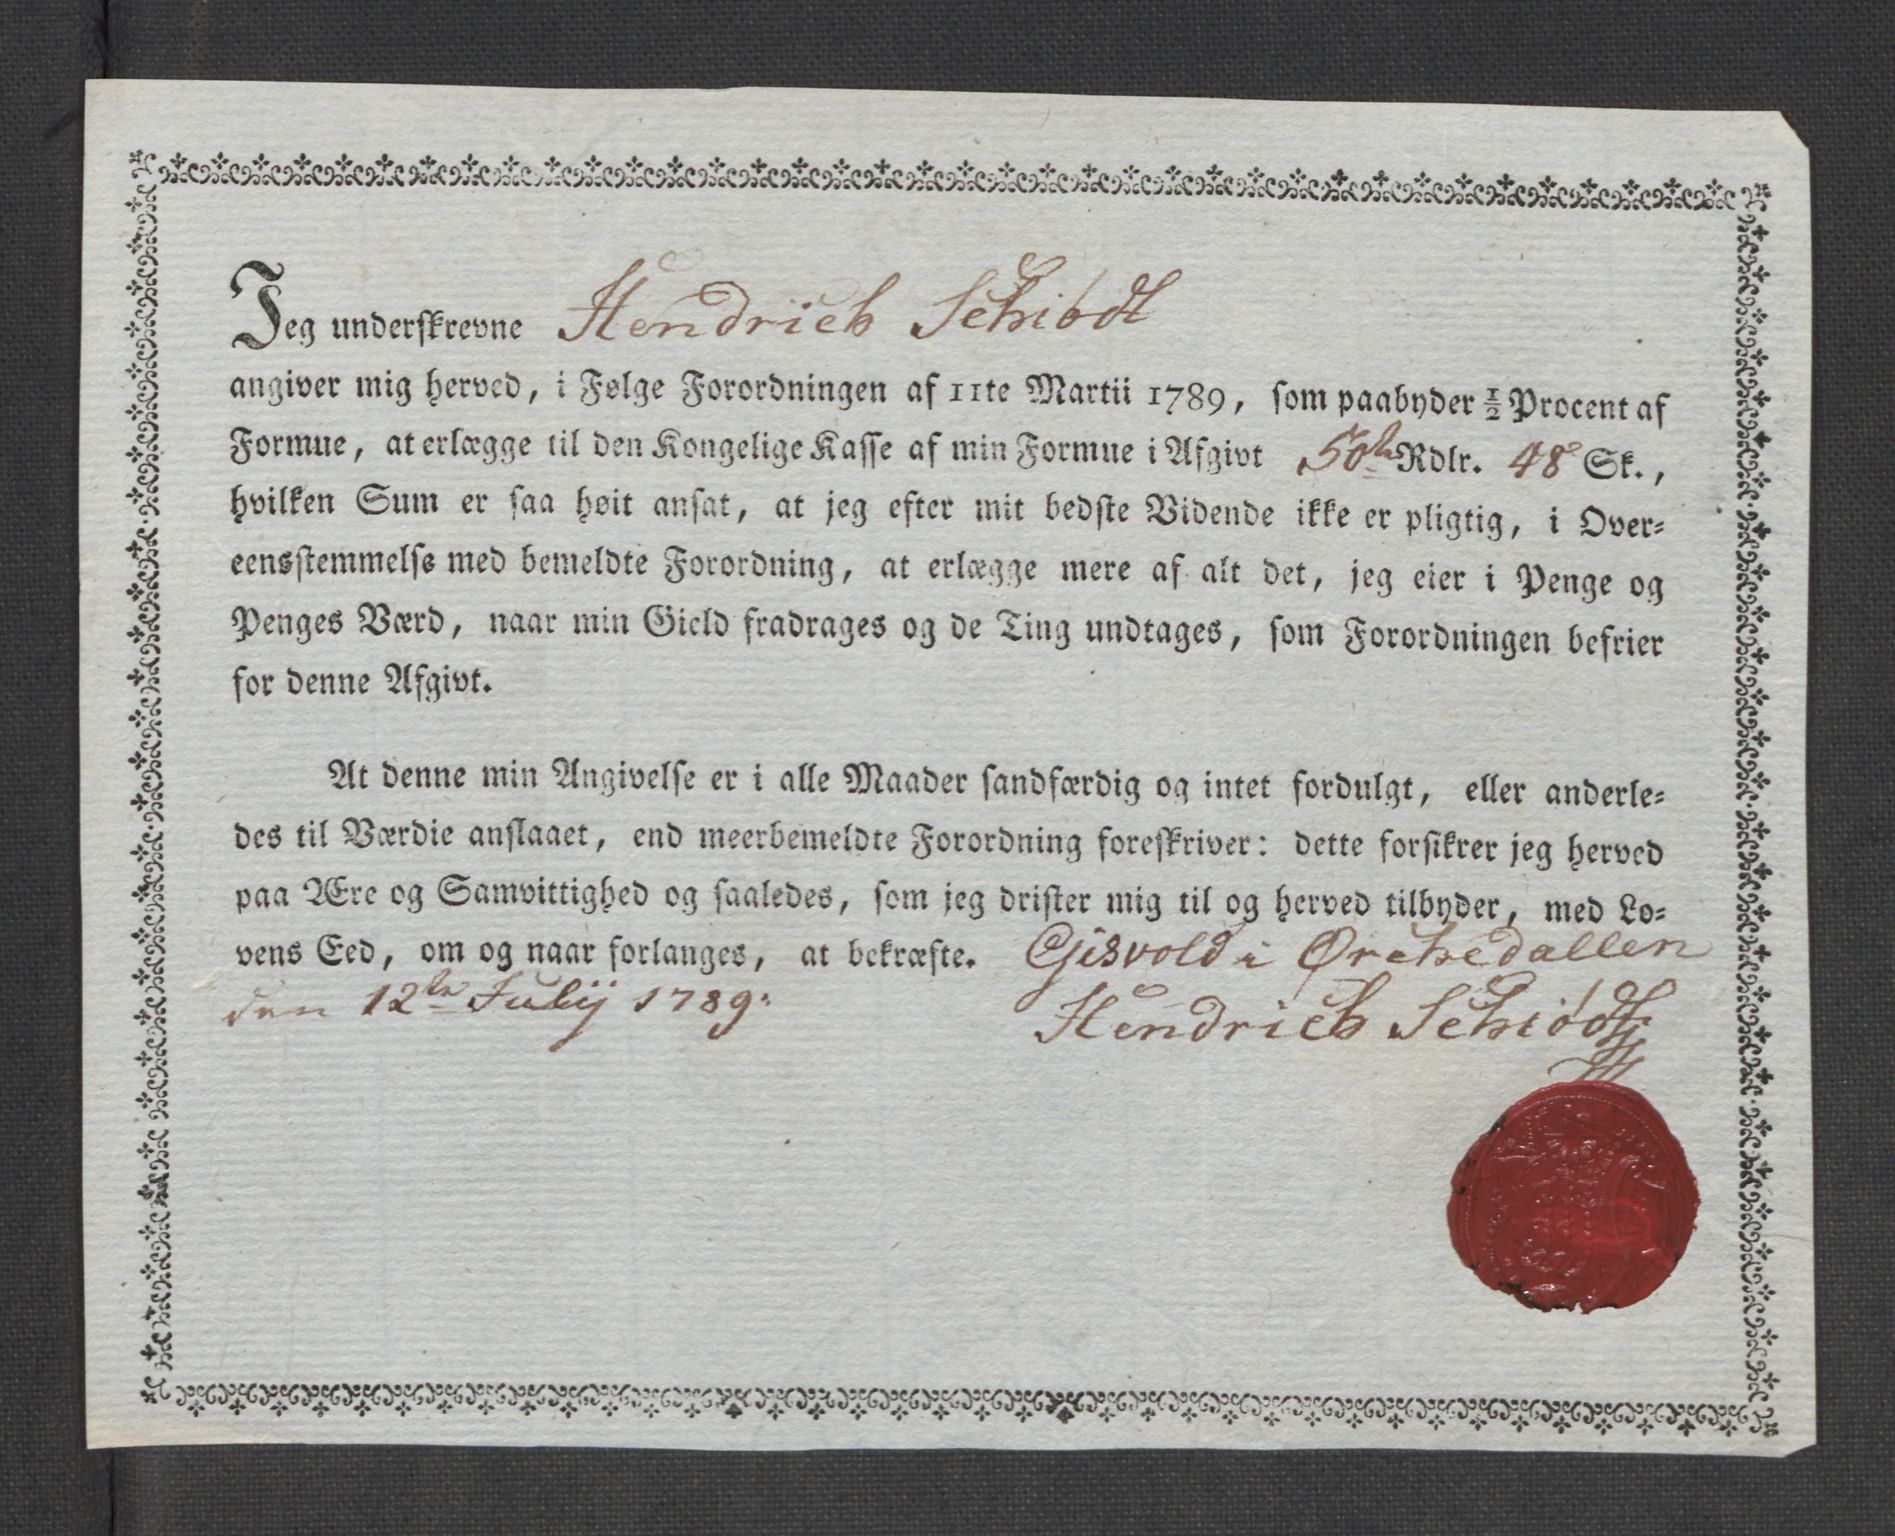 Jeg underskrevne Hendrich Schiødt
angiver mig herved, i Følge Forordningen af 11te Martii 1789, som paabyder ½ Procent af
Formue, at erlægge til den Kongelige Kasse af min Formue i Afgivt 50te Rdlr. 48 Sk.,
hvilken Sum er saa høit ansat, at jeg efter mit bedste Vidende ikke er pligtig, i Over=
eensstemmelse med bemeldte Forordning, at erlægge mere af alt det, jeg eier i Penge og
Penges Værd, naar min Gield fradrages og de Ting undtages, som Forordningen befrier
for denne Afgivt.
At denne min Angivelse er i alle Maader sandfærdig og intet fordulgt, eller anderle=
des til Værdie anslaaet, end meerbemeldte Forordning foreskriver: dette forsikrer jeg herved
paa Ære og Samvittighed og saaledes, som jeg drister mig til og herved tilbyder, med Lo=
vens Eed, om og naar forlanges, at bekræfte. Gisvold i Ørchedallen
den 12te Julij 1789.
Hendrich Schiødt